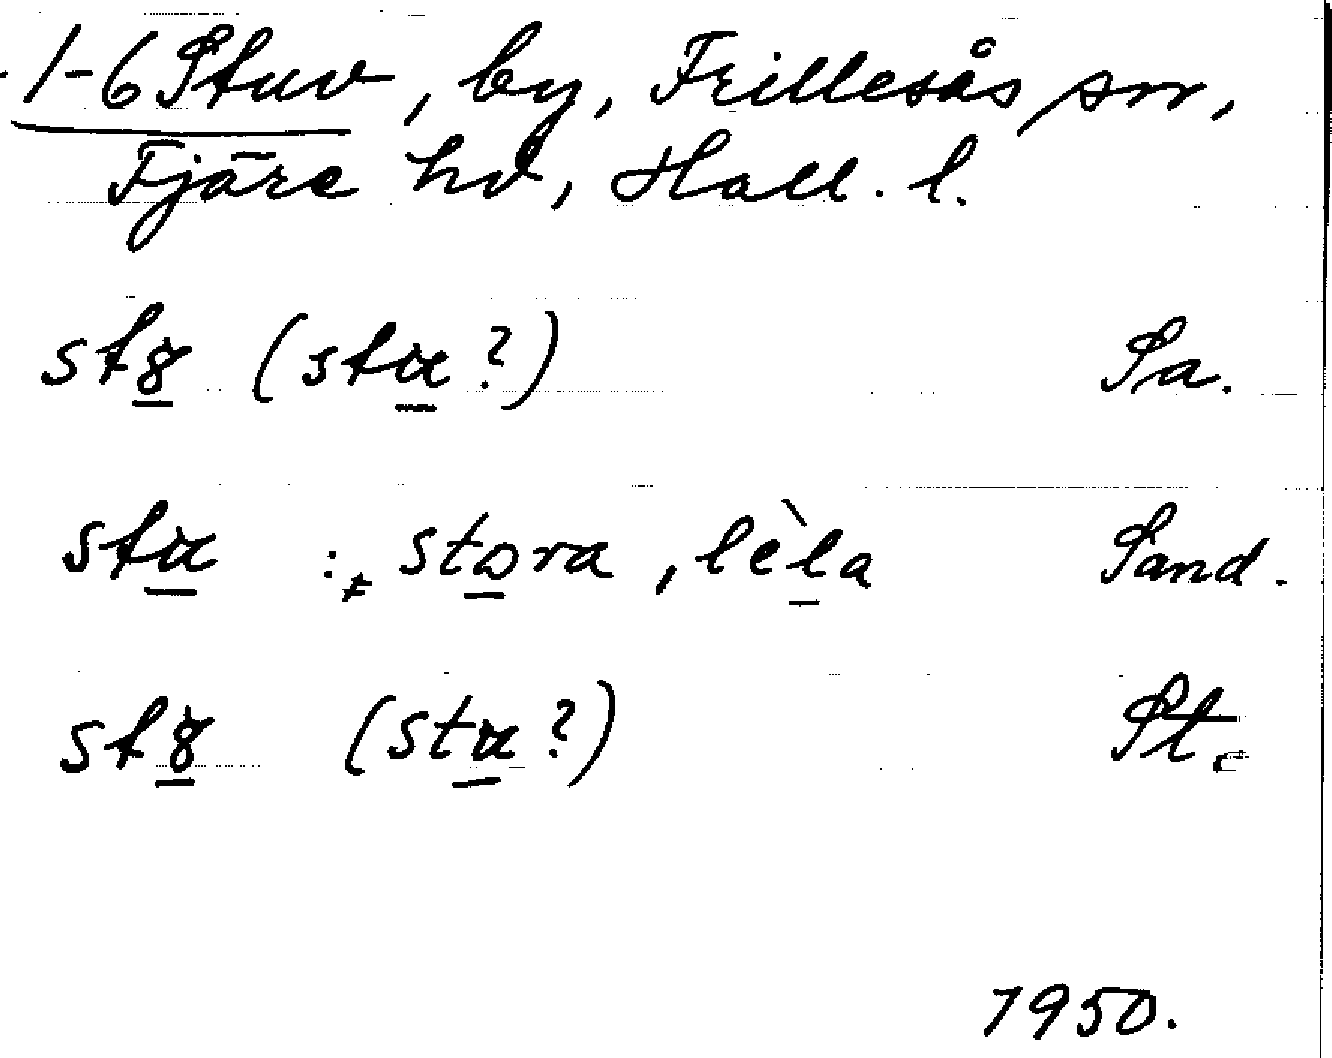 1-6 Stuv, by, Frillesås sn,
Fjäre hd, Hall. l.
st8 (stu?) Sa.
stu :≠ stora, lèla Sand.
st8 (stu?) St.
1950.